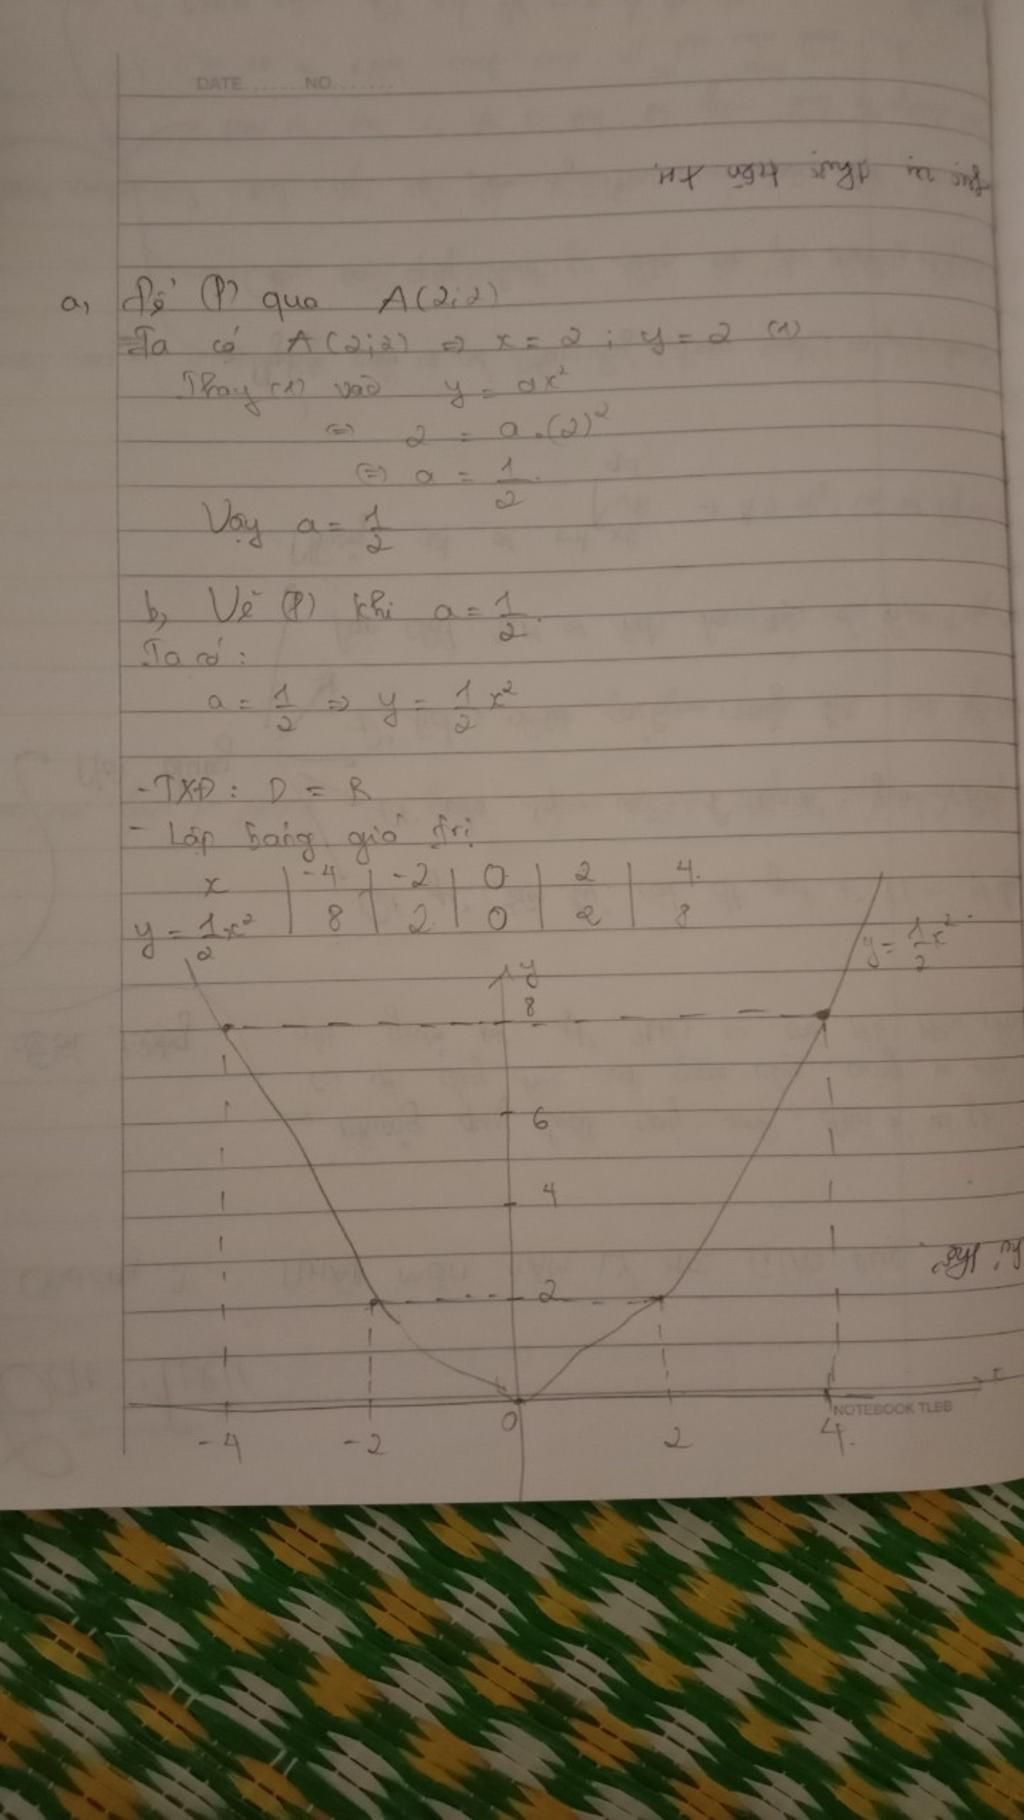 DATE........NO........
a, Để (P) qua A(2;2)
Ta có A(2;2) => x = 2 ; y = 2 (1)
Thay (1) vào y = ax²
<=> 2 = a.(2)²
<=> a = 1/2.
Vậy a = 1/2
b, Vẽ (P) khi a = 1/2.
Ta có:
a = 1/2 => y = 1/2 x²
- TXĐ: D = R
- Lập bảng giá trị
x | -4 | -2 | 0 | 2 | 4.
y = 1/2 x² | 8 | 2 | 0 | 2 | 8
y = 1/2 x²
y
8
6
4
2
x
NOTEBOOK TLBB
-4 -2 0 2 4.